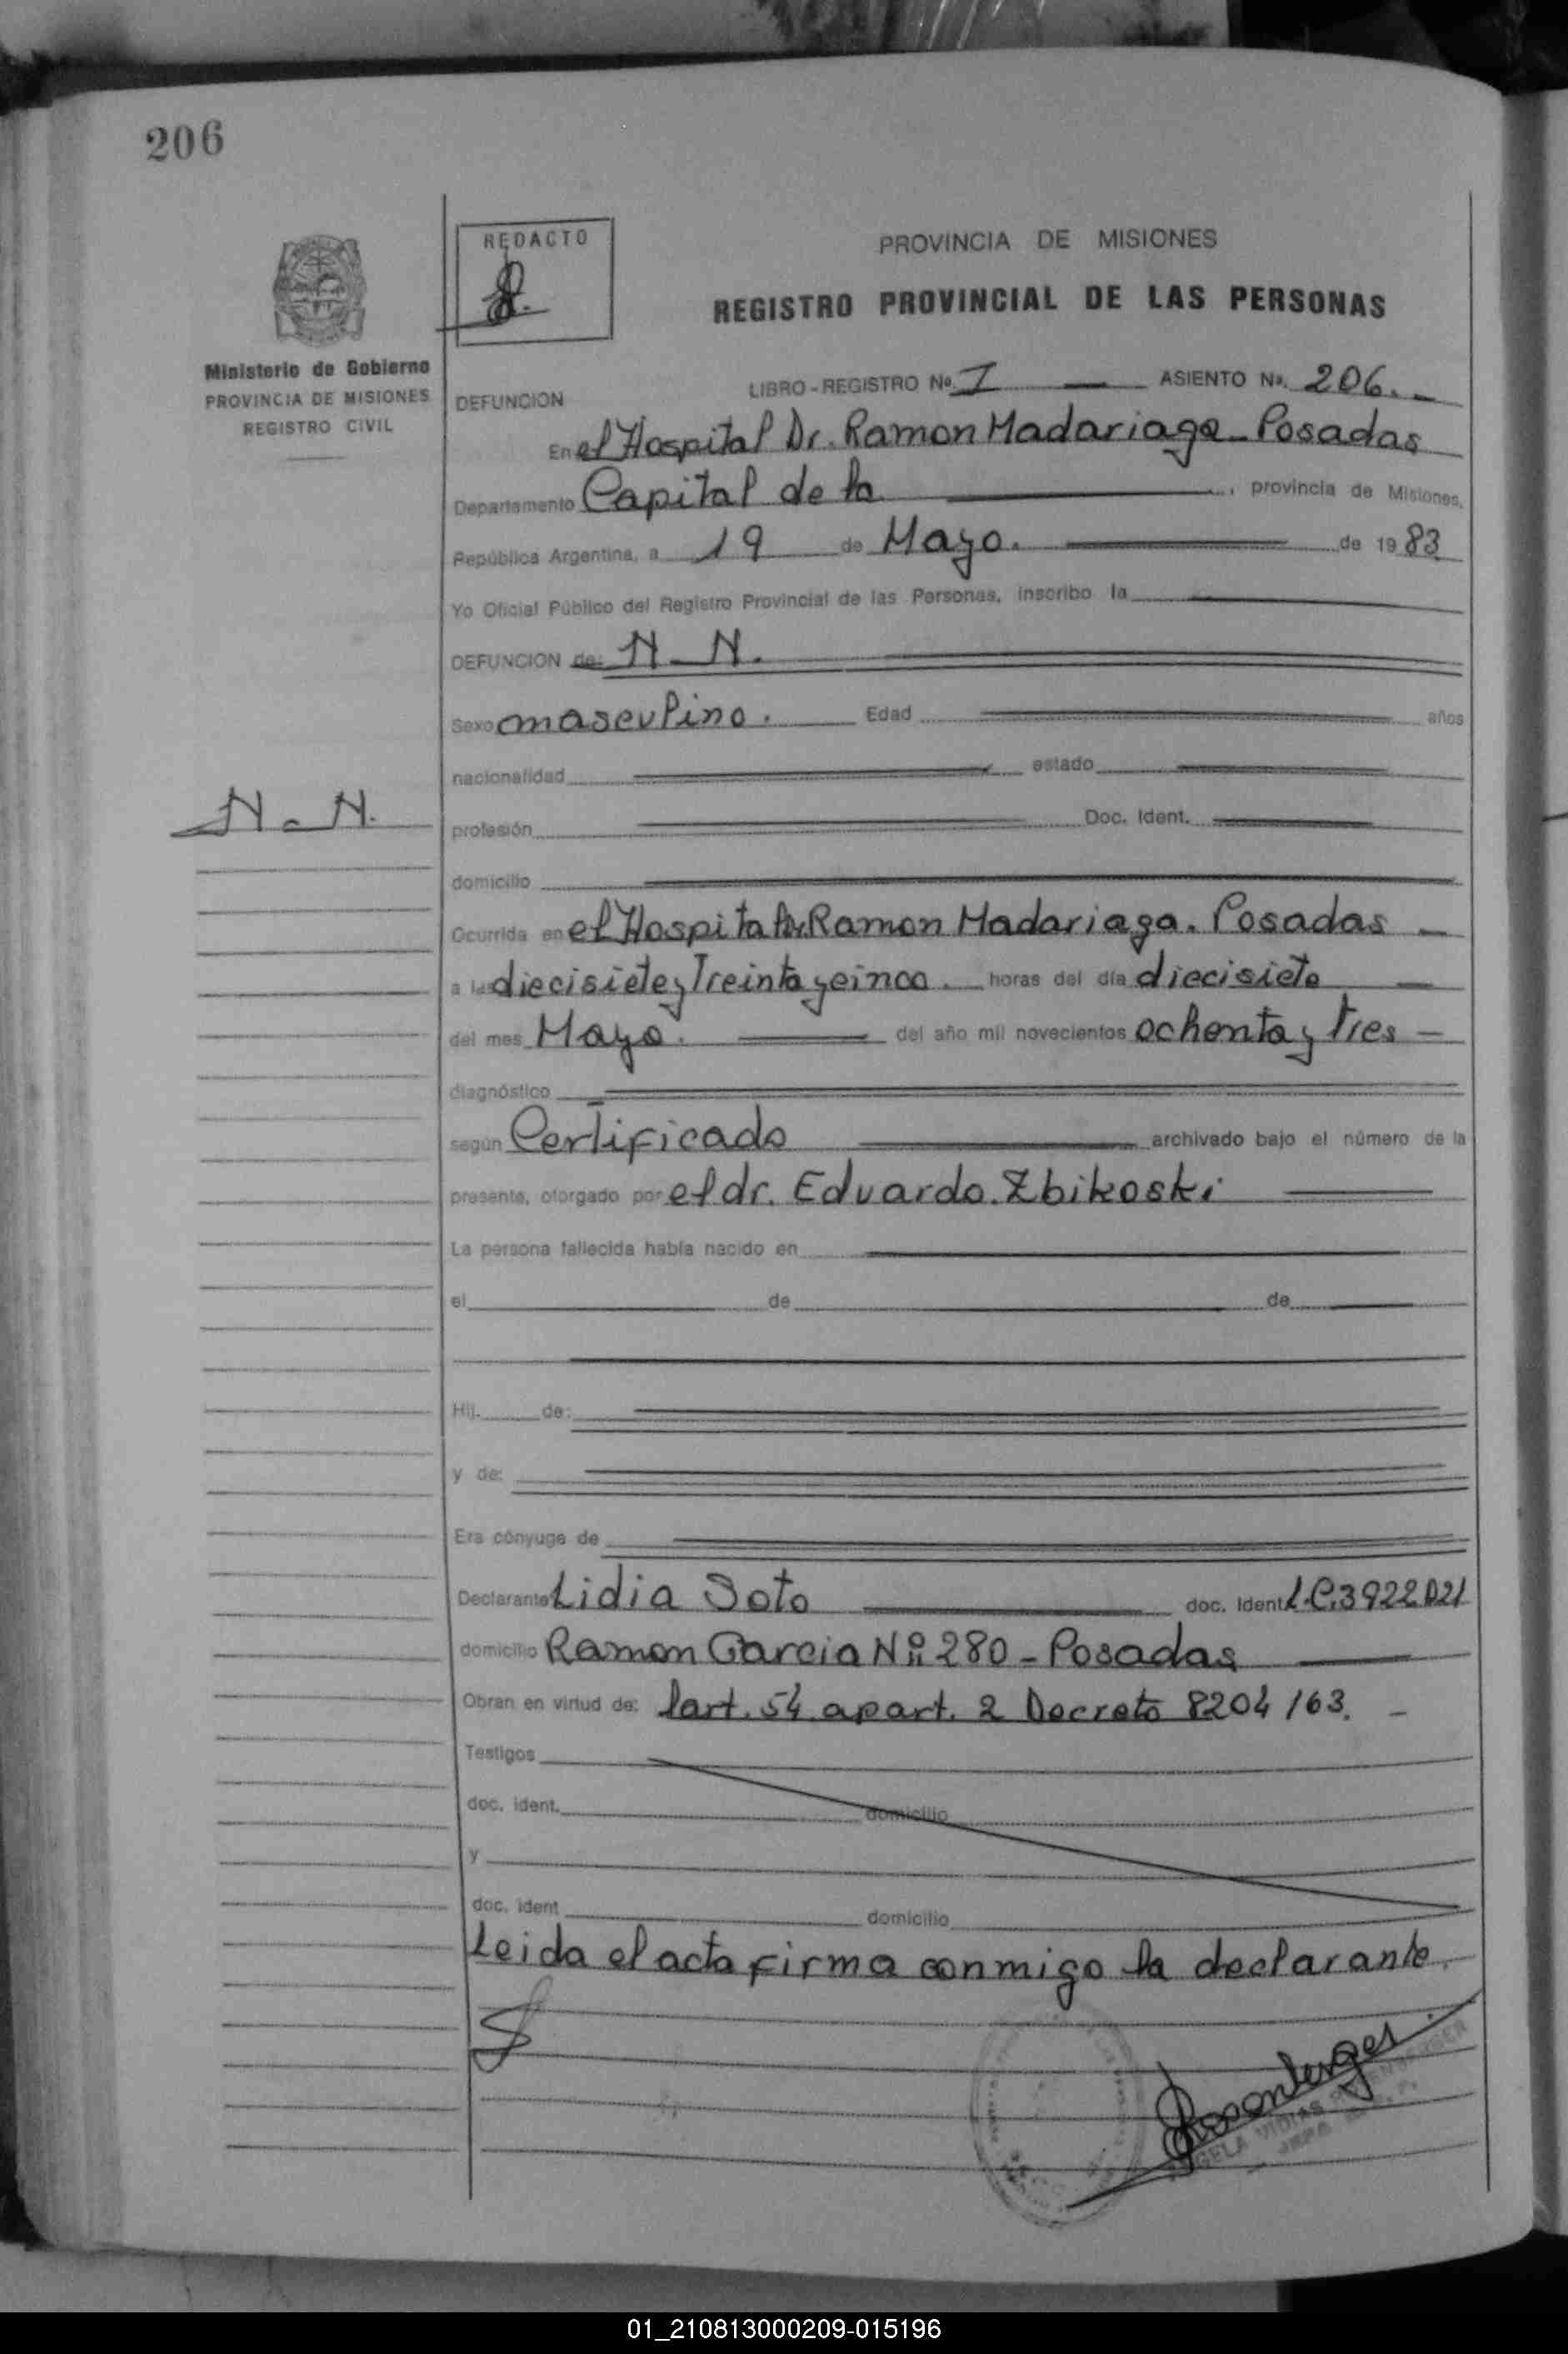 206
REDACTO
PROVINCIA DE MISIONES
REGISTRO PROVINCIAL DE LAS PERSONAS
Ministerio de Gobierno
PROVINCIA DE MISIONES
REGISTRO CIVIL
LIBRO-REGISTRO No. I — ASIENTO No. 206.-
DEFUNCION
En el Hospital Dr. Ramon Madariaga - Posadas
Departamento Capital de la , provincia de Misiones,
República Argentina, a 19 de Mayo. de 1983
Yo Oficial Público del Registro Provincial de las Personas, inscribo la
DEFUNCION de: N-N.
Sexo masculino. Edad años
nacionalidad estado
N-N.
profesión Doc. Ident.
domicilio
Ocurrida en el Hospital Dr. Ramon Madariaga. Posadas -
a las diecisiete y Treinta y cinco. horas del día diecisiete -
del mes Mayo. del año mil novecientos ochenta y tres -
diagnóstico
según Certificado archivado bajo el número de la
presente, otorgado por el dr. Eduardo. Zbikoski
La persona fallecida había nacido en
el de de
Hij. de:
y de:
Era cónyuge de
Declarante Lidia Soto doc. Ident. L.C.3922021
domicilio Ramon Garcia Nº 280 - Posadas
Obran en virtud de: lart. 54 apart. 2 Decreto 8204/63. -
Testigos
doc. ident. domicilio
y
doc. ident domicilio
Leida el acta firma conmigo la declarante.
01_210813000209-015196